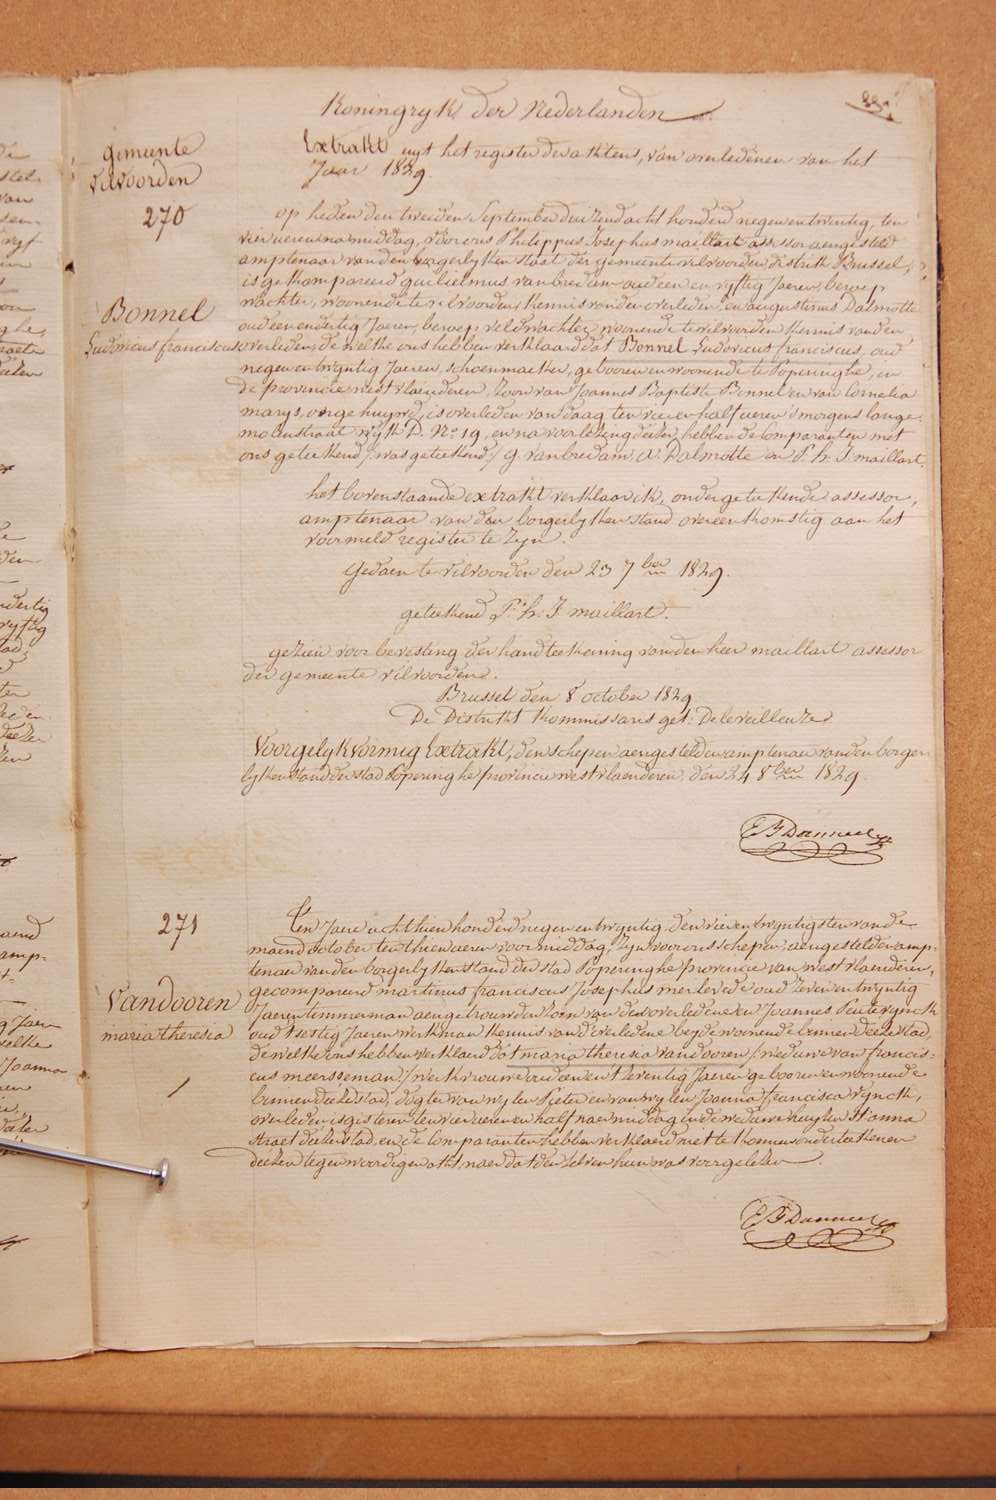 Koningryk der Nederlanden
gemeente
vilvoorden
Extrakt uyt het register der aktens, van overledenen van het
Jaar 1829
270
op heden den tweeden September duyzend acht honderd negen en twintig, ten
vier ueren namiddag, vóór ons Philippus Josephus maillart assessor aengesteld
amptenaar van den borgerlyken staet der gemeente vilvoorden distrikt Brussel,
is gekompareerd guilielmus vanbredam oud een en vyftig Jaeren, beroep
wachter, woonende te vilvoorden, kennis van den overleden, en augustinus Dalmotte
oud een en dertig Jaeren, beroep veldwachter woonende te vilvoorden kennis van den
Bonnel
Ludovicus franciscus
overleden, de welke ons hebben verklaard dat Bonnel Ludovicus franciscus, oud
negen en twyntig Jaeren, schoenmaeker, gebooren en woonende te Poperinghe, en
de provincie west vlaenderen, zoon van Joannes Baptiste Bonnel en van Cornelia
marys, ongehuywd, is overleden van daag ten vier en half ueren s'morgens lange
molenstraat wyk D. No 19, en na voorlezing dezer, hebben de Comparanten met
ons geteekend /: was geteekend :/ g. vanbredam A. Dalmotte en P. h. J. maillart.
het bovenstaande extrakt verklaar ik, ondergeteekende assessor,
amptenaar van den borgerlyken stand overeenkomstig aan het
voormeld register te zyn.
Gedaen te vilvoorden den 23 7ber 1829.
geteekend P. h. J maillart.
gezien voor bevesting der handteekening van den heer maillart assessor
der gemeente vilvoorden.
Brussel den 8 october 1829
De Distrikt kommissaris get:
Voorgelykvormig Extrakt, den schepen aengestelden amptenaer van den borger
lyken stand der stad Poperinghe provincie westvlaenderen den 24 8ber 1829.
271
Ten Jaere achthien honderd negen en twyntig den vier en twyntigsten van de
maend october ten thien ueren voormiddag, zyn voor ons schepen aengestelden amp-
tenaer van den borgerlyken stand der stad Poperinghe provincie van westvlaenderen,
Vandooren
maria theresia
gecompareerd martinus franciscus Josephus merlevede oud zeven en twyntig
Jaeren timmerman aengetrouwden zoon van den overledene en Joannes Peuterynck
oud tsestig Jaeren werkman kennis van de overledene beyde woonende binnen deeze stad,
de welke ons hebben verklaerd dat maria theresia vandooren /: weduwe van francis-
cus meersseman :/ werkvrouwe oud een en t'zeventig Jaeren gebooren en woonende
binnen deeze stad, dogter van wylen Pieter en van wylen Joanna francisca Rynck,
overleden is gisteren ten vier ueren en half naermiddag in de weduwe huyzen St anna
straet deezer stad, en de Comparanten hebben verklaerd niet te konnen onderteekenen
deezen tegenwoordigen akt, naer dat den zelven hun was voorgelezen.